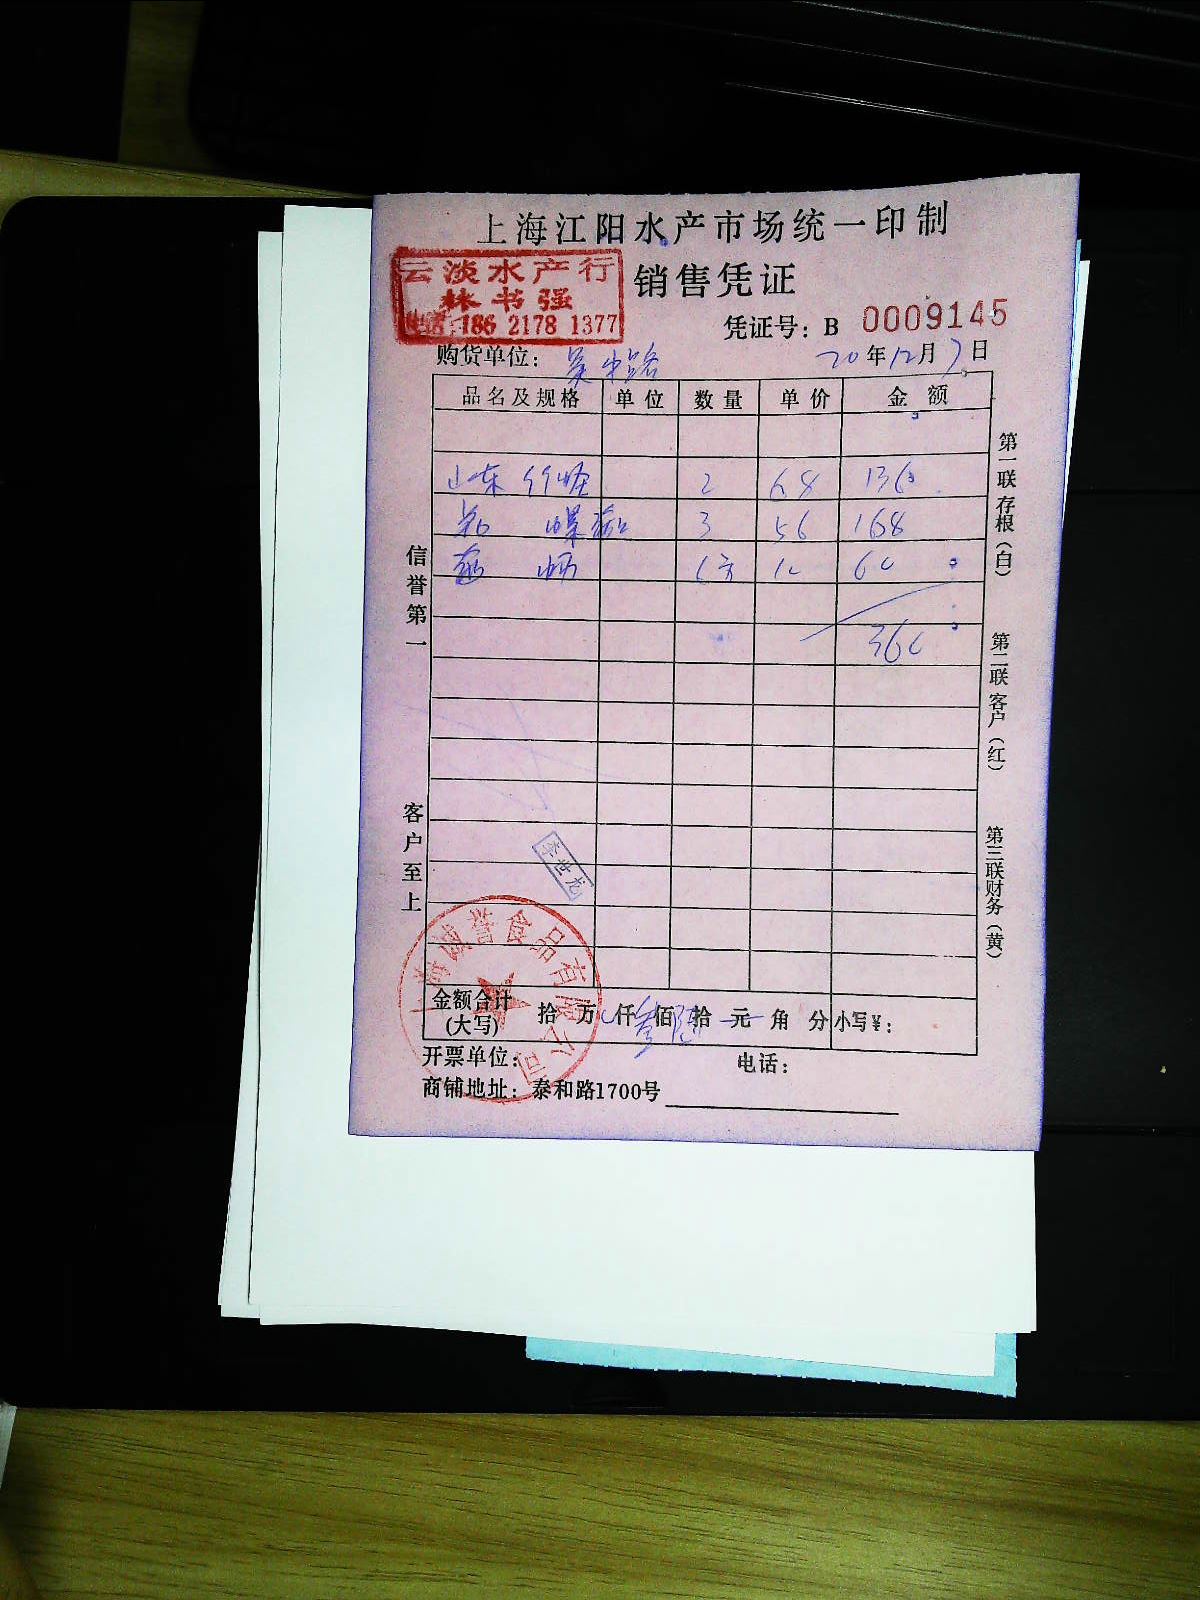 上海江阳水产市场统一印制
云淡水产行
林书强
电话:186 2178 1377
销售凭证
凭证号:B 0009145
购货单位:吴中路
20年12月7日
品名及规格 单位 数量 单价 金额
山东 2 68 136
3 56 168
60
360
信誉第一
客户至上
第一联存根(白)
第二联客户(红)
第三联财务(黄)
李世龙
上海诚誉食品有限公司
金额合计(大写) 拾 万 仟叁佰陆拾 元 角 分 小写¥:
开票单位: 电话:
商铺地址:泰和路1700号